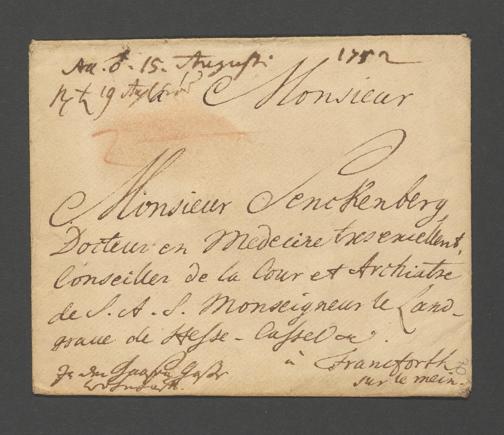 15. Augusti 1752
19
A Monsieur
Monsieur Senckenberg
Docteur en Medecine tres excellent,
Conseiller de la Cour et Archiatre
de S. A. S. Monseigneur le Land-
grave de Hesse-Cassel
à Francforth
sur le mein.
In der